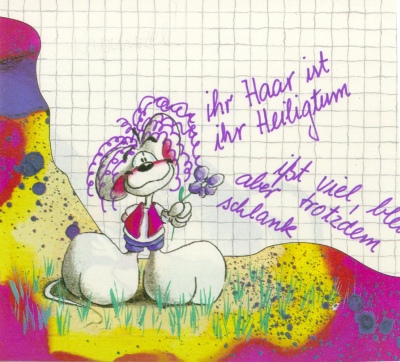 ihr Haar ist
ihr Heiligtum
ißt viel,
aber trotzdem
schlank